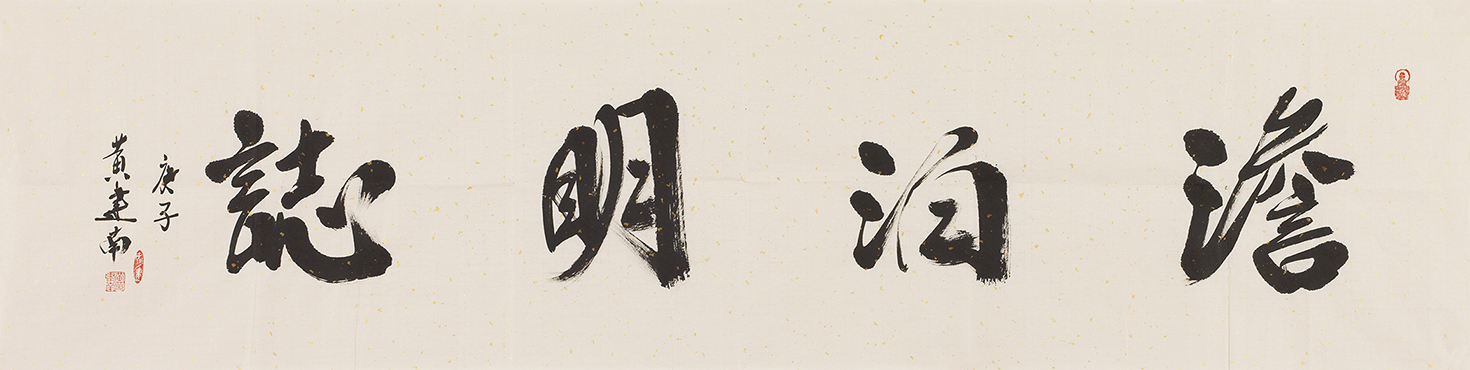 澹泊明誌
庚子
黄建南